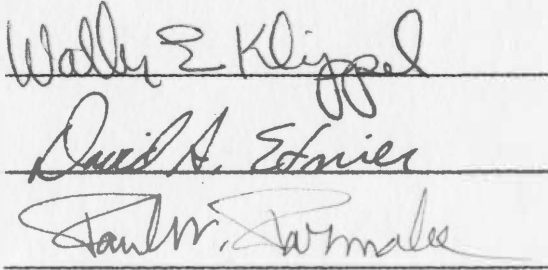 Wally E Klippel
David A. Etnier
Paul W. Parmalee